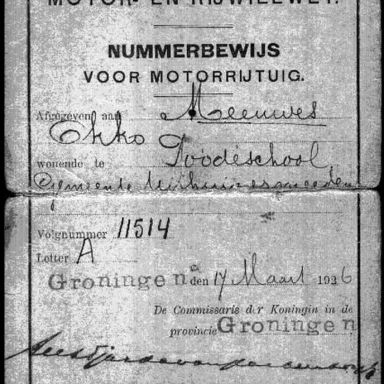 MOTOR- EN RIJWIELWET.
NUMMERBEWIJS
VOOR MOTORRIJTUIG.
Afgegeven aan Meeuwes
Okko
wonende te Roodeschool
Gemeente Uithuizermeeden
Volgnummer 11514
Letter A
Groningen den 17 Maart 1926
De Commissaris der Koningin in de
provincie Groningen